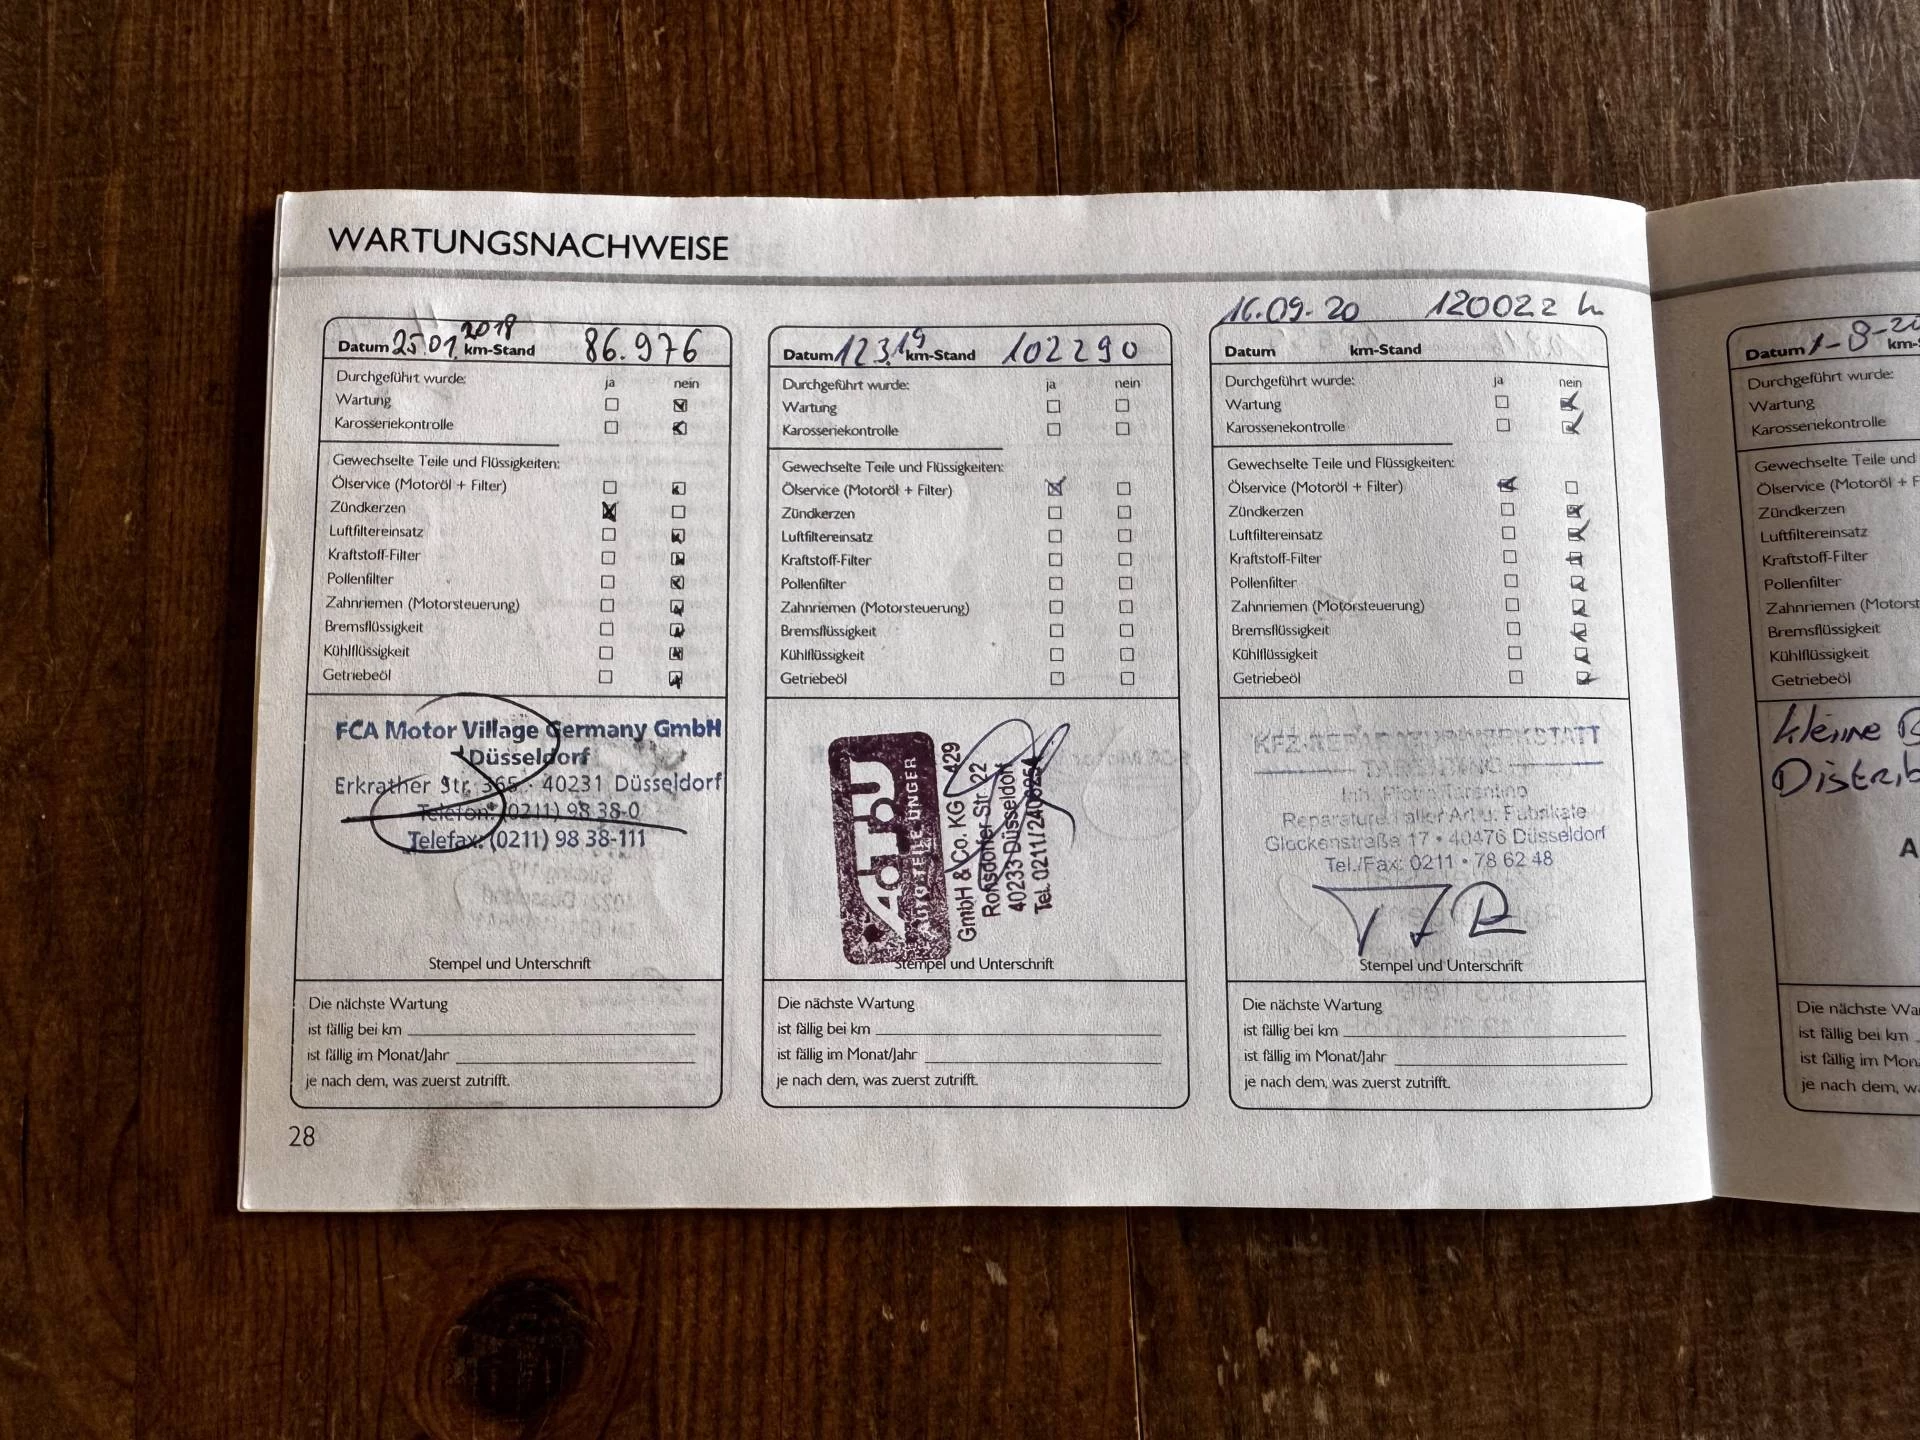 WARTUNGSNACHWEISE
Datum 25.01.2018 km-Stand 86.976
Durchgeführt wurde: ja nein
Wartung
Karosseriekontrolle
Gewechselte Teile und Flüssigkeiten:
Ölservice (Motoröl + Filter)
Zündkerzen
Luftfiltereinsatz
Kraftstoff-Filter
Pollenfilter
Zahnriemen (Motorsteuerung)
Bremsflüssigkeit
Kühlflüssigkeit
Getriebeöl
FCA Motor Village Germany GmbH
Düsseldorf
Erkrather Str. 365 · 40231 Düsseldorf
Telefon: (0211) 98 38-0
Telefax: (0211) 98 38-111
Stempel und Unterschrift
Die nächste Wartung
ist fällig bei km
ist fällig im Monat/Jahr
je nach dem, was zuerst zutrifft.
28
Datum 12.3.19 km-Stand 102290
Durchgeführt wurde: ja nein
Wartung
Karosseriekontrolle
Gewechselte Teile und Flüssigkeiten:
Ölservice (Motoröl + Filter)
Zündkerzen
Luftfiltereinsatz
Kraftstoff-Filter
Pollenfilter
Zahnriemen (Motorsteuerung)
Bremsflüssigkeit
Kühlflüssigkeit
Getriebeöl
A.T.U
AUTO TEILE UNGER
GmbH & Co. KG 429
Ronsdorfer Str. 22
40233 Düsseldorf
Tel. 0211/
Stempel und Unterschrift
Die nächste Wartung
ist fällig bei km
ist fällig im Monat/Jahr
je nach dem, was zuerst zutrifft.
16.09.20 120022
Datum km-Stand
Durchgeführt wurde: ja nein
Wartung
Karosseriekontrolle
Gewechselte Teile und Flüssigkeiten:
Ölservice (Motoröl + Filter)
Zündkerzen
Luftfiltereinsatz
Kraftstoff-Filter
Pollenfilter
Zahnriemen (Motorsteuerung)
Bremsflüssigkeit
Kühlflüssigkeit
Getriebeöl
KFZ-REPARATURWERKSTATT
TARENTINO
Inh. Pietro Tarentino
Reparaturen aller Art u. Fabrikate
Glockenstraße 17 • 40476 Düsseldorf
Tel./Fax: 0211 • 78 62 48
Stempel und Unterschrift
Die nächste Wartung
ist fällig bei km
ist fällig im Monat/Jahr
je nach dem, was zuerst zutrifft.
Datum 1-8-20 km-
Durchgeführt wurde:
Wartung
Karosseriekontrolle
Gewechselte Teile und
Ölservice (Motoröl + F
Zündkerzen
Luftfiltereinsatz
Kraftstoff-Filter
Pollenfilter
Zahnriemen (Motorst
Bremsflüssigkeit
Kühlflüssigkeit
Getriebeöl
kleine
Distrib
A
Die nächste Wa
ist fällig bei km
ist fällig im Mon
je nach dem, w